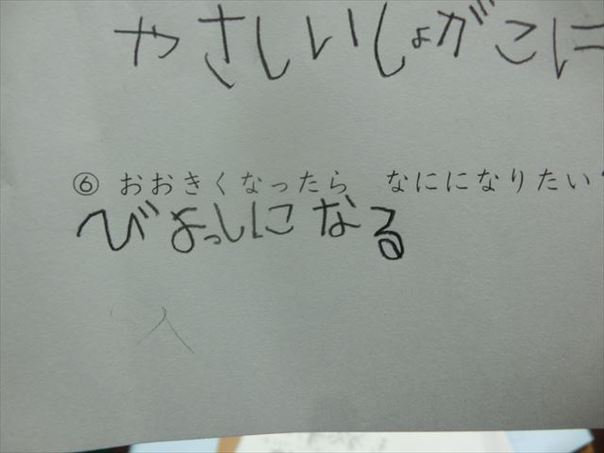 やさしいしょがこに
⑥ おおきくなったら　なにになりたい
びよっしになる